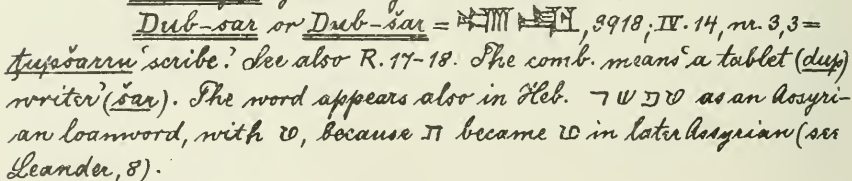 Dub-sar or Dub-šar = 𒁾 𒊬, 3918; IV. 14, nr. 3, 3 =
ṭupšarru 'scribe.' See also R. 17-18. The comb. means 'a tablet (dup)
writer' (šar). The word appears also in Heb. טפשר as an Assyri-
an loanword, with ט, because ת became ט in later Assyrian (see
Leander, 8).